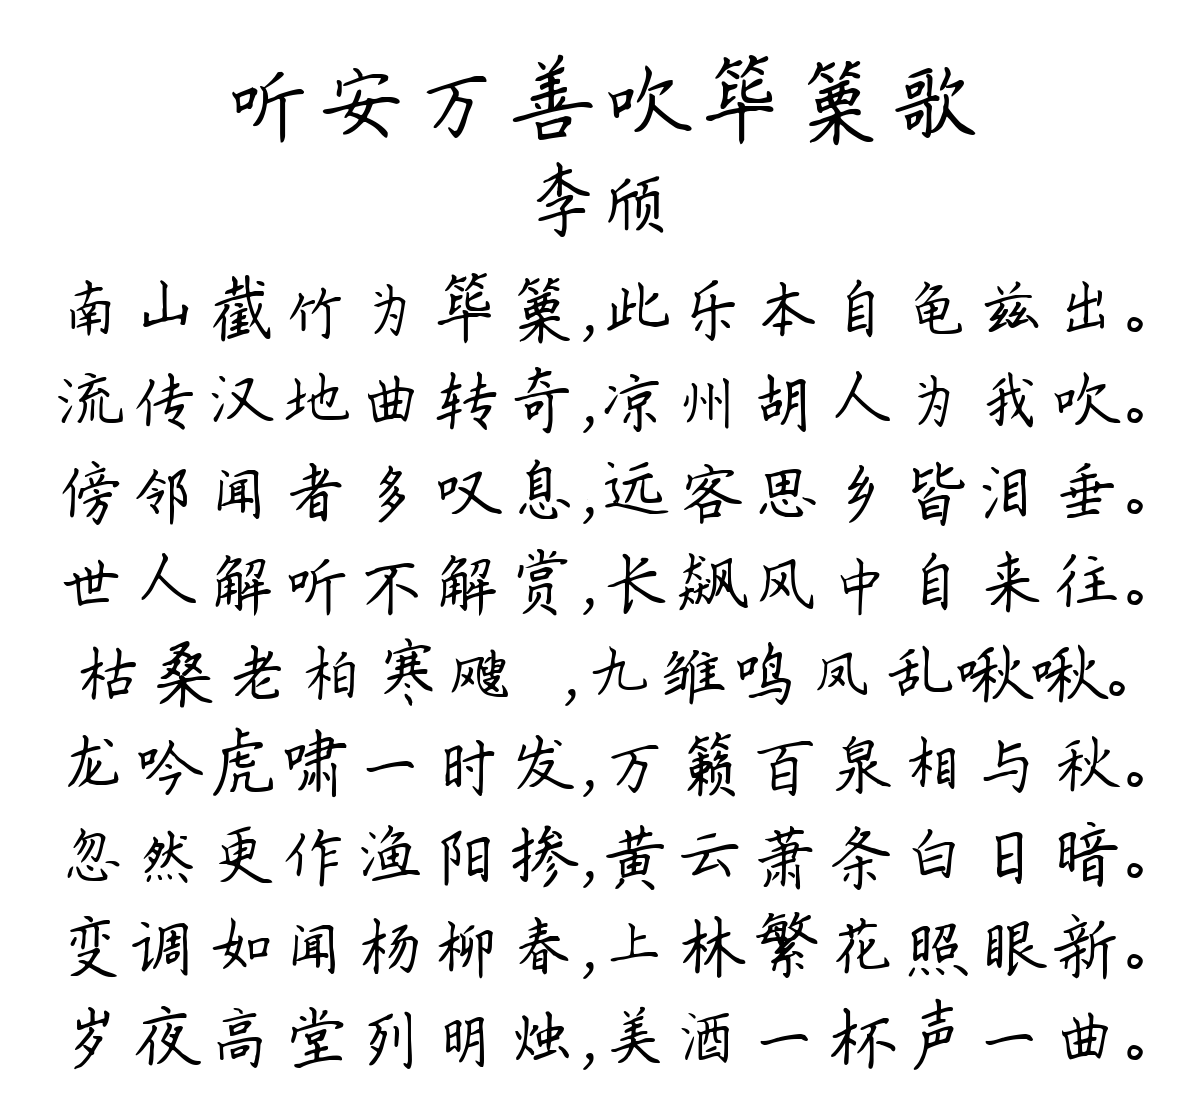 听安万善吹筚篥歌
李颀
南山截竹为筚篥,此乐本自龟兹出。
流传汉地曲转奇,凉州胡人为我吹。
傍邻闻者多叹息,远客思乡皆泪垂。
世人解听不解赏,长飙风中自来往。
枯桑老柏寒飕 ,九雏鸣凤乱啾啾。
龙吟虎啸一时发,万籁百泉相与秋。
忽然更作渔阳掺,黄云萧条白日暗。
变调如闻杨柳春,上林繁花照眼新。
岁夜高堂列明烛,美酒一杯声一曲。